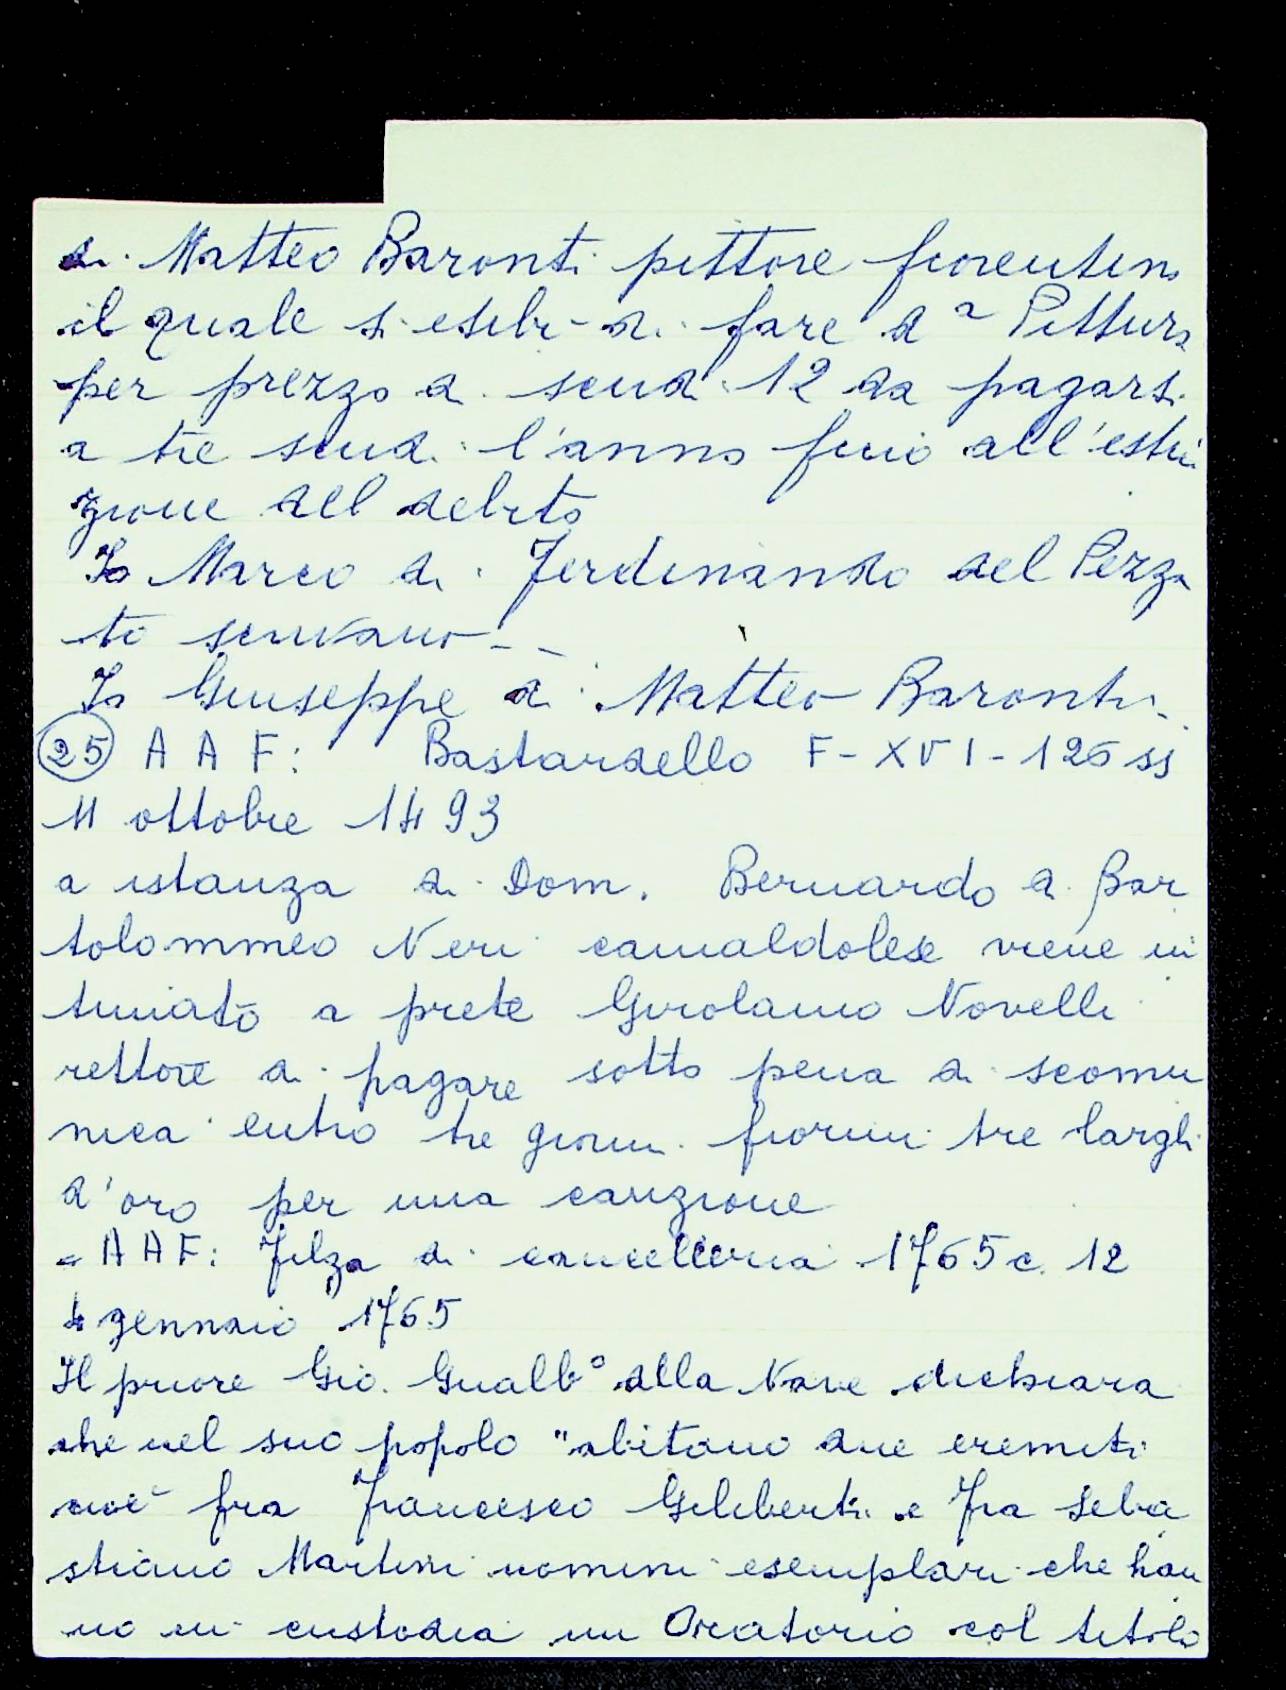 di Matteo Baronti pittore fiorentino
il quale si esibì di fare d.ª Pittura
per prezzo di scudi 12 da pagarsi
a tre scudi l'anno fino all'estin
zione del debito
Io Marco di Ferdinando del Pezza
to scrivano --
Io Giuseppe di Matteo Baronti
(25) A A F: Bastardello F-XVI-126 ss
11 ottobre 1493
a istanza di Dom. Bernardo di Bar
tolommeo Neri camaldolese viene in
timato a prete Girolamo Novelli
rettore di pagare sotto pena di scomu
nica entro tre giorni fiorini tre larghi
d'oro per una
= A A F: Filza di cancelleria 1765 c. 12
4 gennaio 1765
Il priore Gio. Gualb° della Nave dichiara
che nel suo popolo "abitano due eremiti
cioè fra Francesco Giliberti e Fra Seba
stiano Martini uomini esemplari che han
no in custodia un Oratorio col titolo